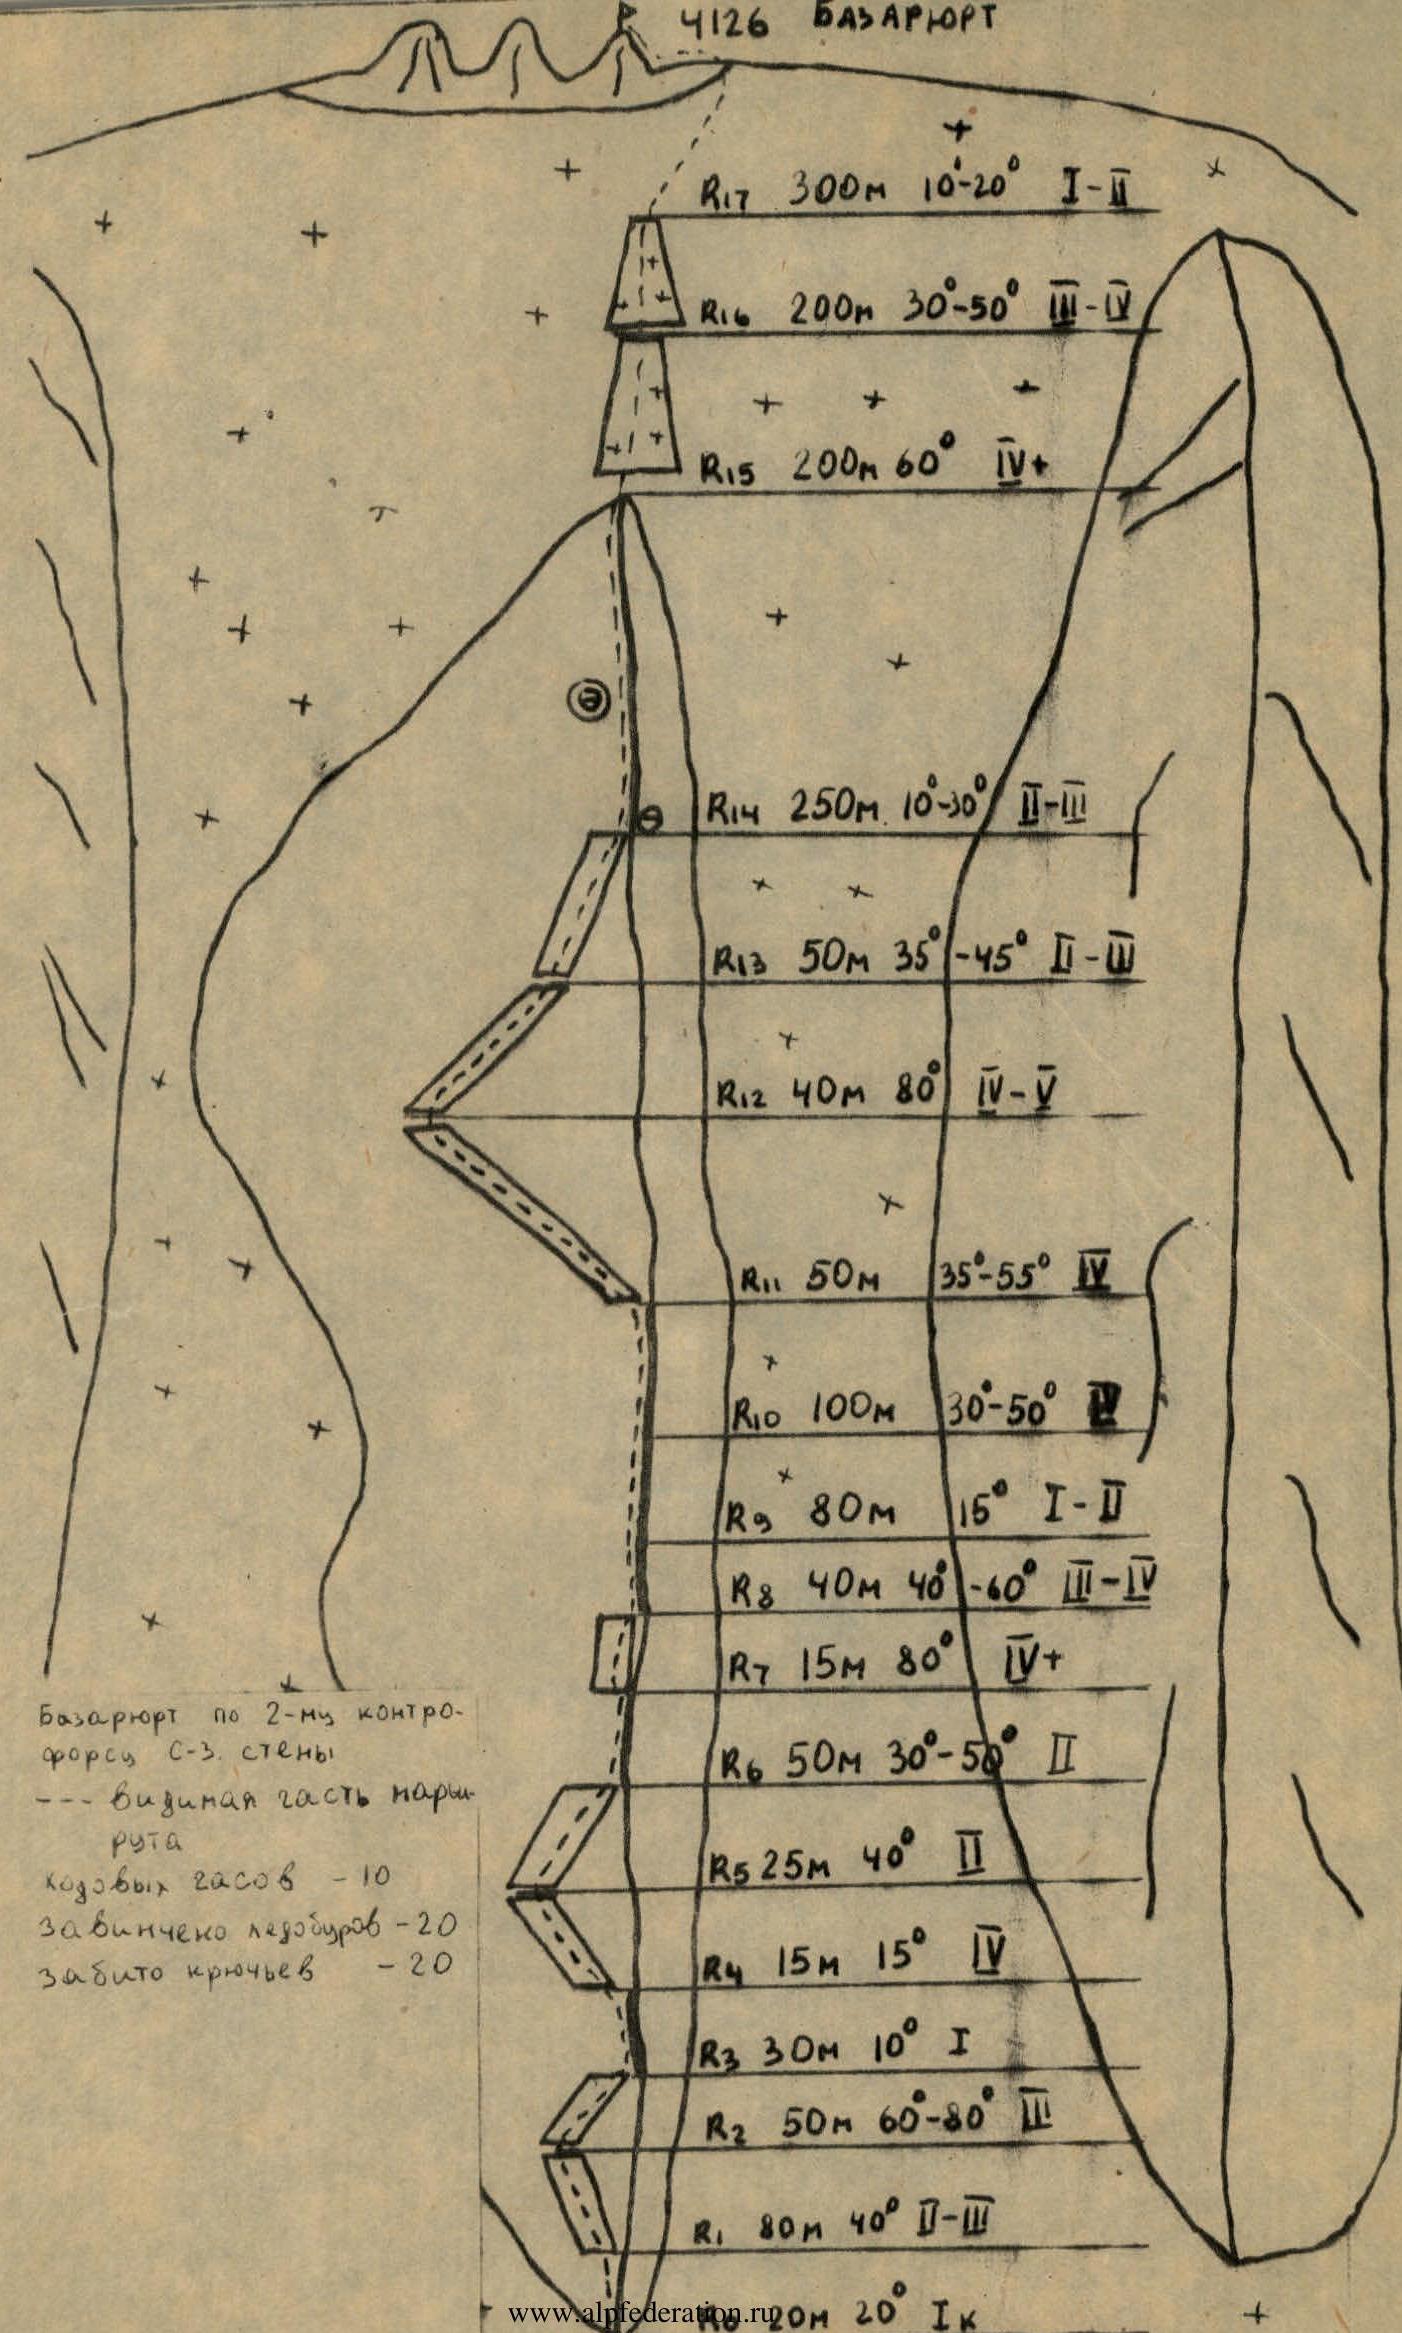 4126 БАЗАРЮРТ
R17 300м 10°-20° I-II
R16 200м 30°-50° III-IV
R15 200м 60° IV+
R14 250м 10°-30° II-III
R13 50м 35°-45° II-III
R12 40м 80° IV-V
R11 50м 35°-55° IV
R10 100м 30°-50° IV
R9 80м 15° I-II
R8 40м 40°-60° III-IV
R7 15м 80° IV+
R6 50м 30°-50° II
R5 25м 40° II
R4 15м 15° IV
R3 30м 10° I
R2 50м 60°-80° III
R1 80м 40° II-III
R0 20м 20° I к
Базарюрт по 2-му контро-
форсу С-З. стены
--- видимая часть марш-
рута
ходовых часов - 10
завинчено ледобуров - 20
забито крючьев - 20
www.alpfederation.ru